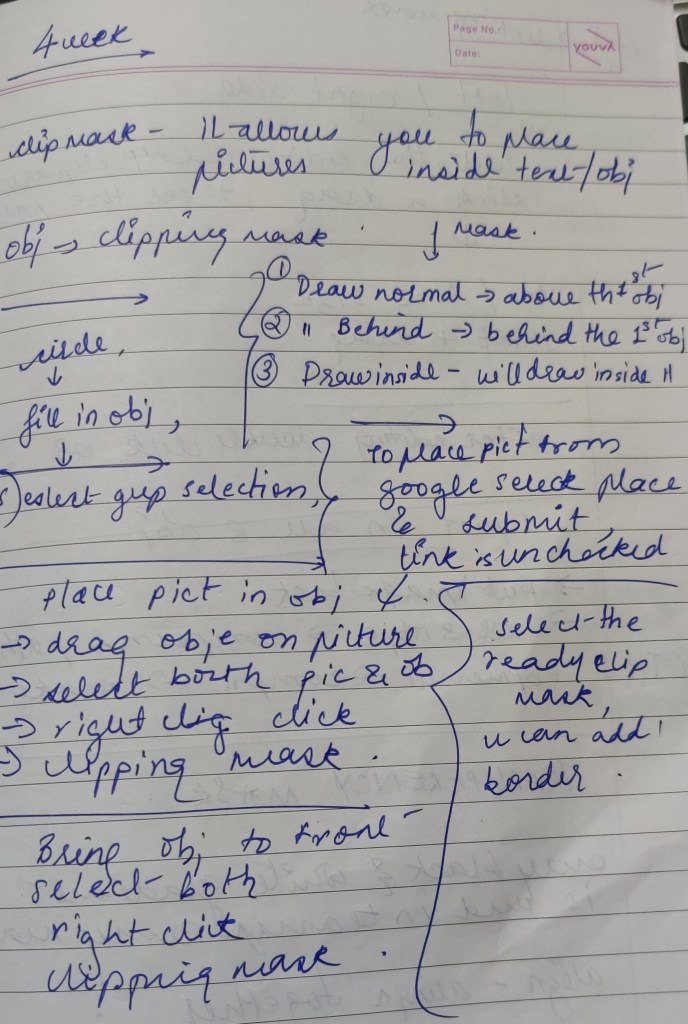 4 week
Page No.:
Date:
youva
clip mask - it allows you to place
pictures inside text/obj
obj → clipping mask ↓ mask.
① Draw normal → above th 1st obj
② " Behind → behind the 1st obj
③ Draw inside - will draw inside "
circle,
↓
fill in obj,
↓
select grup selection,
To place pict from
google select place
& submit,
link is unchecked
place pict in obj
→ drag obje on picture
→ select both pic & ob
→ right click
→ clipping mask.
select the
ready clip
mask,
u can add
border.
Bring obj to front -
select both
right click
clipping mask.